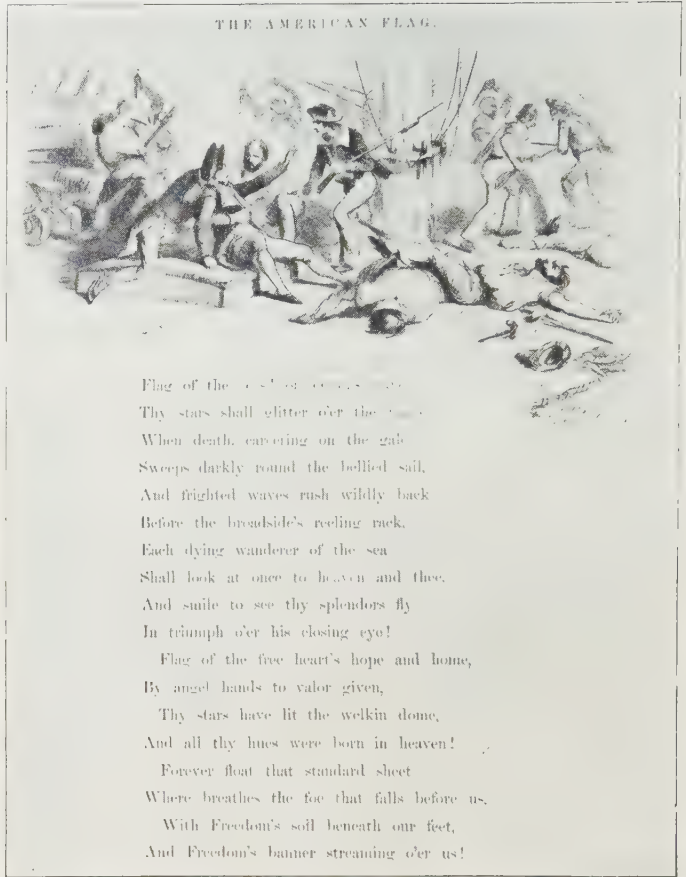 THE AMERICAN FLAG.
Flag of the
Thy stars shall glitter o'er the
When death, careering on the gale
Sweeps darkly round the bellied sail,
And frighted waves rush wildly back
Before the broadside's reeling rack,
Each dying wanderer of the sea
Shall look at once to heaven and thee,
And smile to see thy splendors fly
In triumph o'er his closing eye!
Flag of the free heart's hope and home,
By angel hands to valor given,
Thy stars have lit the welkin dome,
And all thy hues were born in heaven!
Forever float that standard sheet
Where breathes the foe that falls before us,
With Freedom's soil beneath our feet,
And Freedom's banner streaming o'er us!